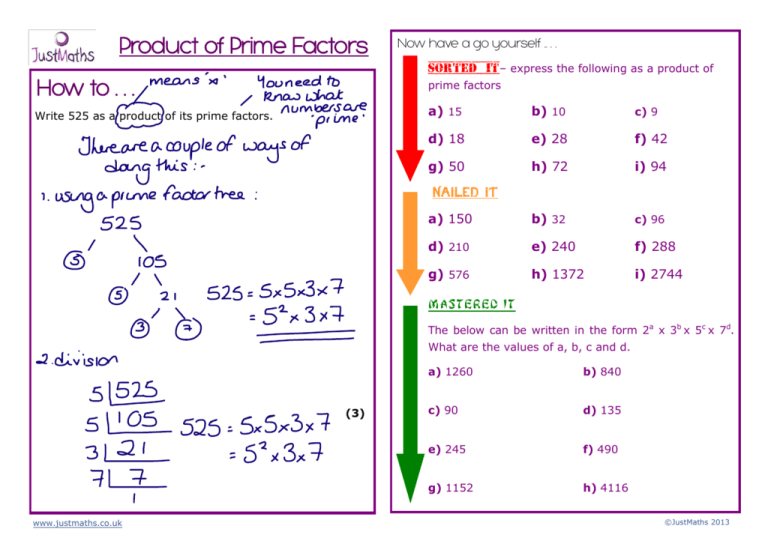 JustMaths
Product of Prime Factors
How to ...
means 'x'
You need to
know what
numbers are
'prime'
Write 525 as a product of its prime factors.
There are a couple of ways of
doing this :-
1. using a prime factor tree :
525
5 105
5 21
3 7
525 = 5x5x3x7
= 5² x 3 x 7
2. division
5 525
5 105
3 21
7 7
1
525 = 5x5x3x7
= 5² x 3 x 7
(3)
www.justmaths.co.uk
Now have a go yourself ...
SORTED IT – express the following as a product of
prime factors
a) 15 b) 10 c) 9
d) 18 e) 28 f) 42
g) 50 h) 72 i) 94
NAILED IT
a) 150 b) 32 c) 96
d) 210 e) 240 f) 288
g) 576 h) 1372 i) 2744
MASTERED IT
The below can be written in the form 2ᵃ x 3ᵇ x 5ᶜ x 7ᵈ.
What are the values of a, b, c and d.
a) 1260 b) 840
c) 90 d) 135
e) 245 f) 490
g) 1152 h) 4116
©JustMaths 2013